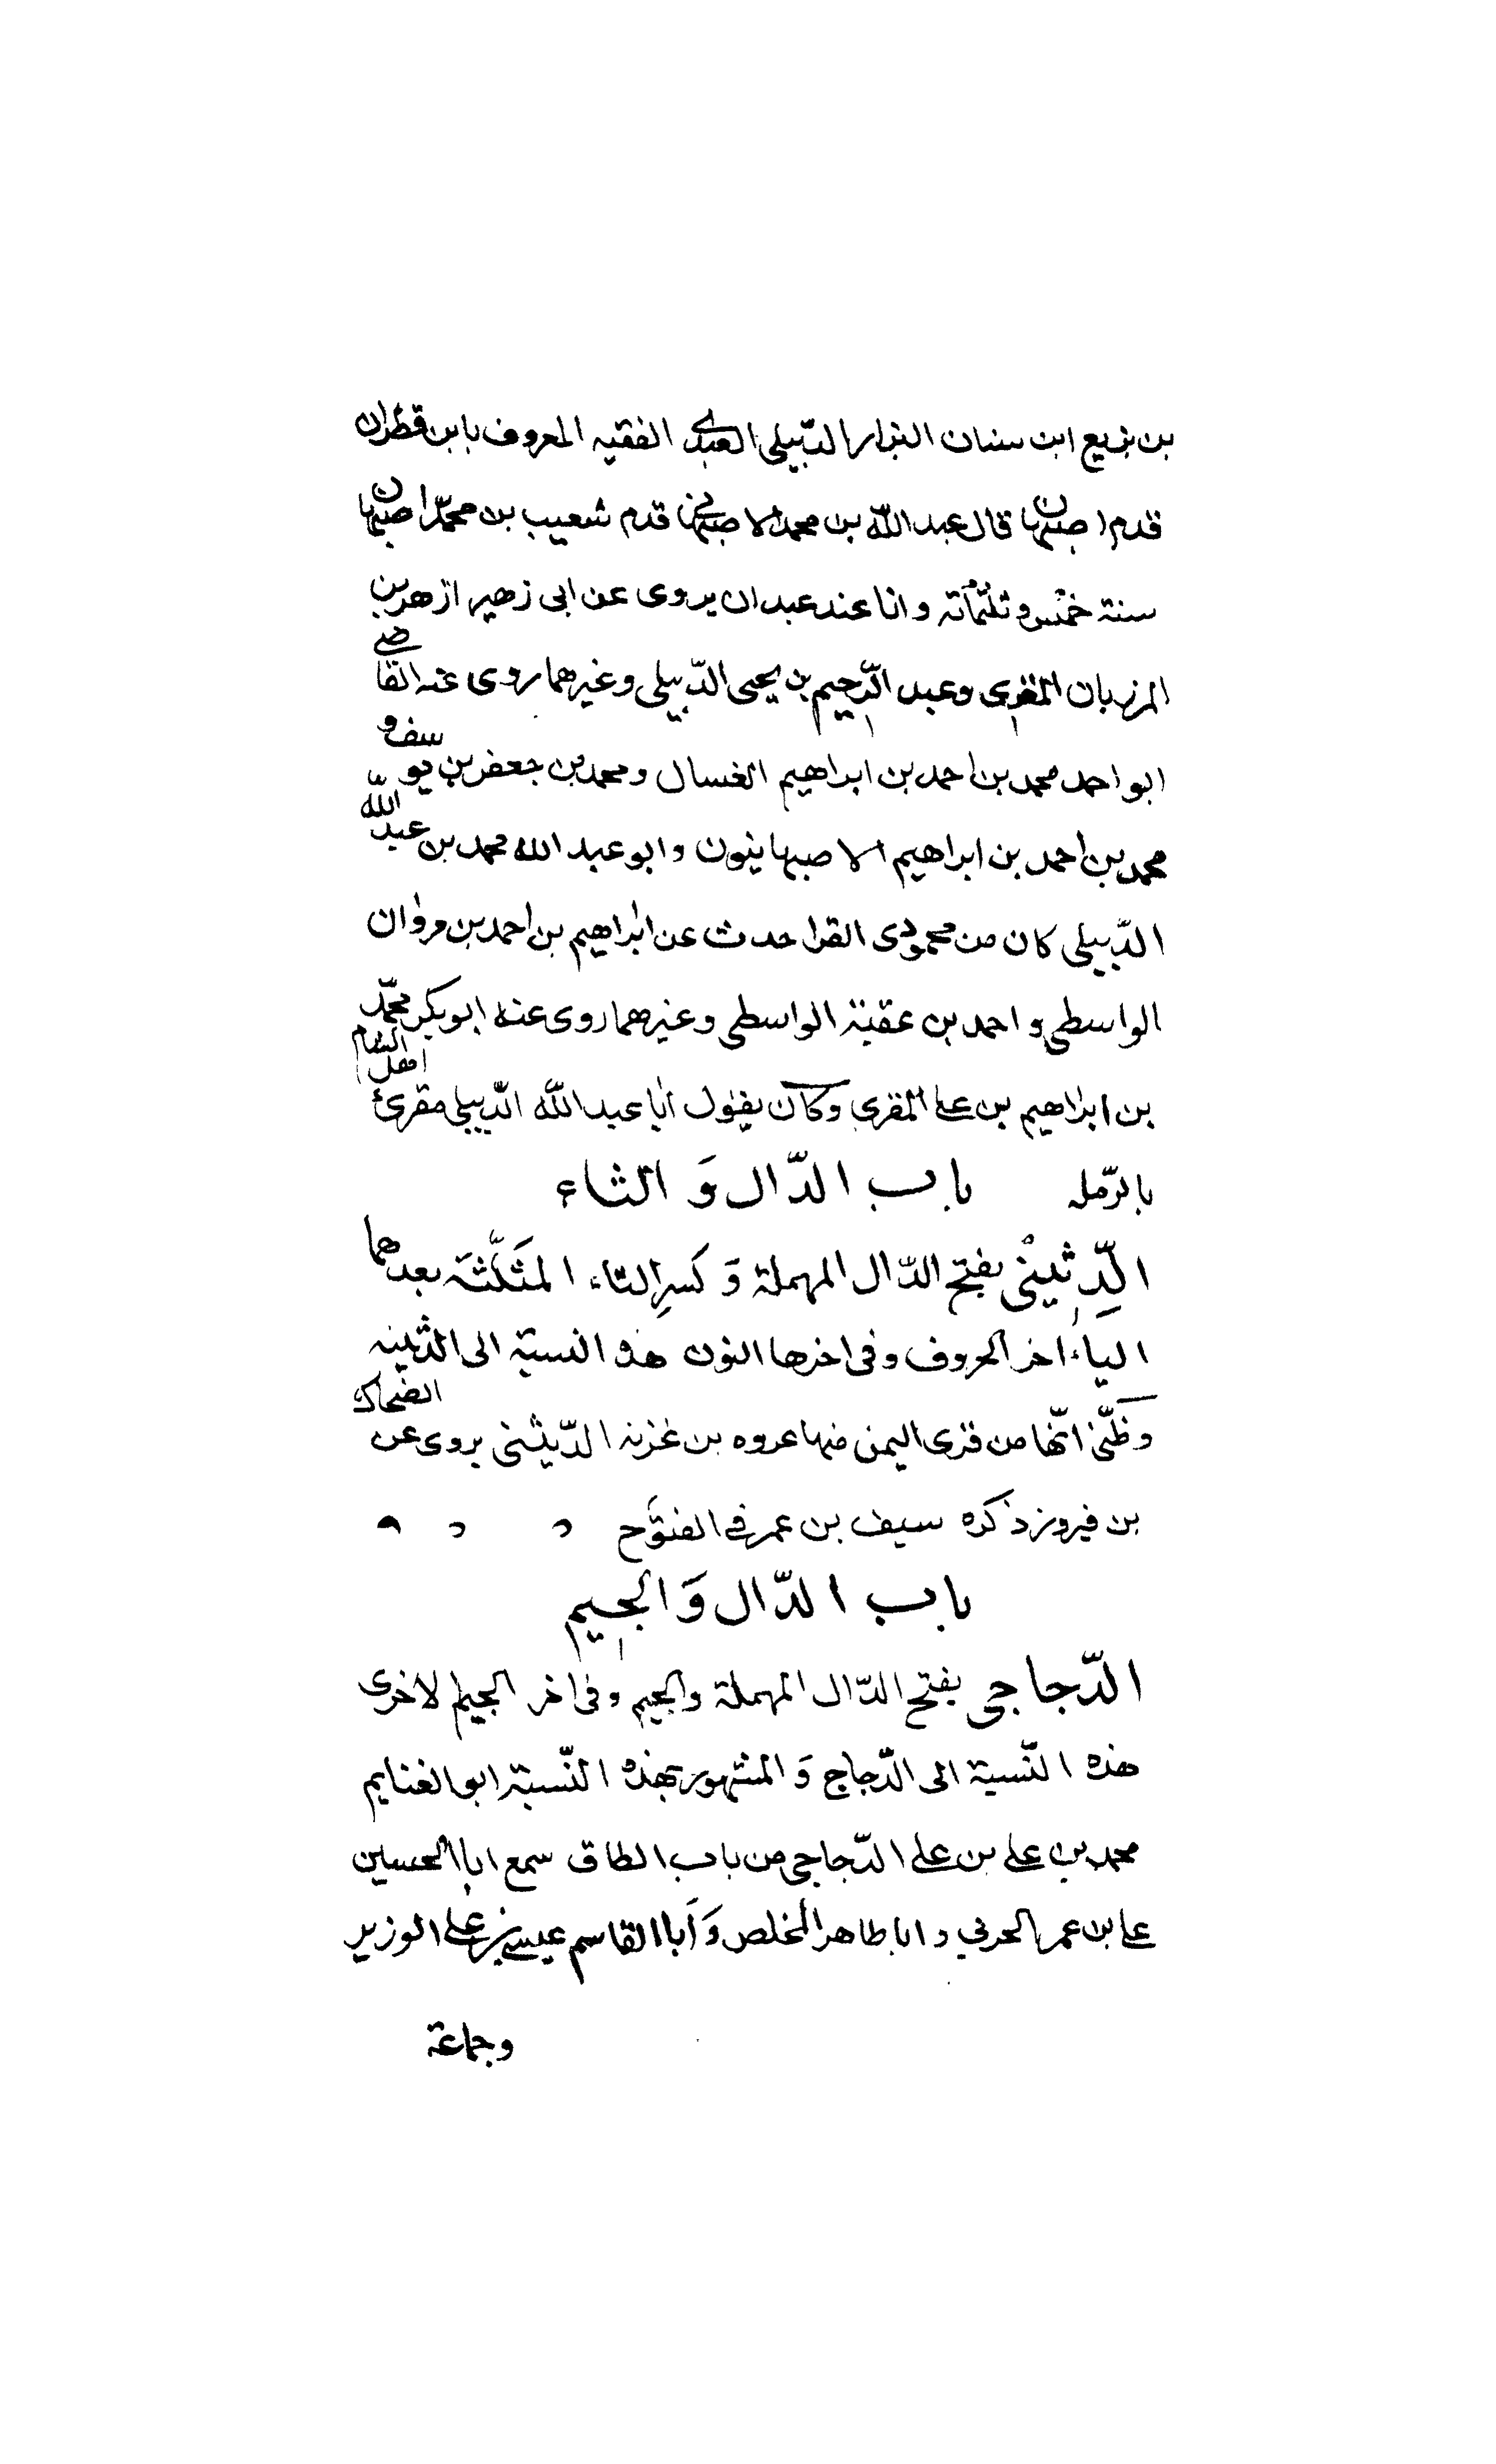 بن بزيع ابن سنان البزار الدّبيلى العبدى الفقيه المعروف بابن قطران
قدم اصبهان قال عبد الله بن محمد الاصبهانى قدم شعيب بن محمّد اصبهان
سنة خمس وثلثمائة وانا عند عبدان يروى عن ابى زهير ازهر بن
المرزبان المقرى وعبد الرّحيم بن يحيى الدّبيلى وغيرهما روى عنه القاضى
ابو احمد محمد بن احمد بن ابراهيم الغسال ومحمد بن جعفر بن يوسف و
محمد بن احمد بن ابراهيم الاصبهانيون وابو عبد الله محمد بن عبد الله
الدّبيلى كان من محمودى القرا حدث عن ابراهيم بن احمد بن مروان
الواسطى واحمد بن عقبة الواسطى وغيرهما روى عنه ابو بكر محمّد
بن ابراهيم بن على المقرى وكان يقول انا عبد الله الدّبيلى مقرئ اهل الشام
بالرّمله باب الدّال وَ الثاء
الدِّثينى بفتح الدّال المهملة وَ كسرِ الثاء المثَلّثَة بعدهما
الياء اخر الحروف وفى اخرها النون هذه النسبة الى الدّثينه
وظنّى انّها من قرى اليمن منها عروه بن غزيه الدّثينى يروى عن الضحاك
بن فيروز ذكره سيف بن عمر فى الفتوح
باب الدّال وَ الجيم
الدّجاجى بفتح الدّال المهملة والجيم وفى اخر الجيم الاخرى
هذه النّسبة الى الدّجاج وَ المشهور بهذه النّسبة ابو الغنايم
محمد بن على بن على الدّجاجى من باب الطاق سمع ابا الحسين
على بن عمر الحربي و ابا طاهر المخلص وَ أبا القاسم عيسى بن على الوزير
وجماعة